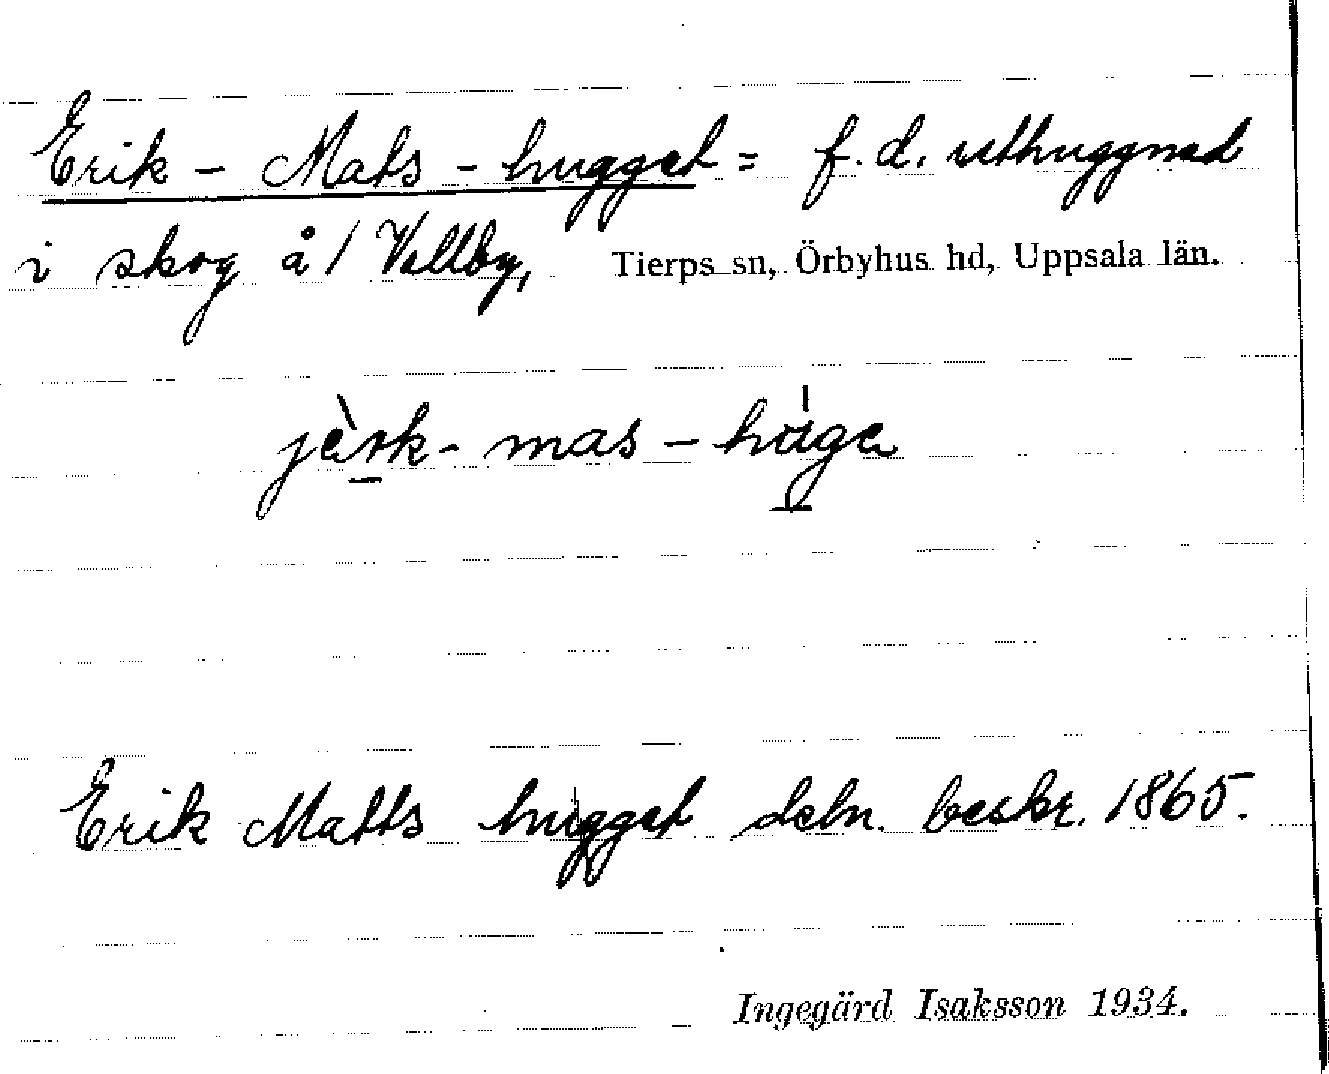 Erik - Mats - hugget = f. d. uthuggnad
i skog å / Vallby, Tierps sn, Örbyhus hd, Uppsala län.
jèrk- mas - huga
Erik Matts hugget debn. beskr. 1865.
Ingegärd Isaksson 1934.